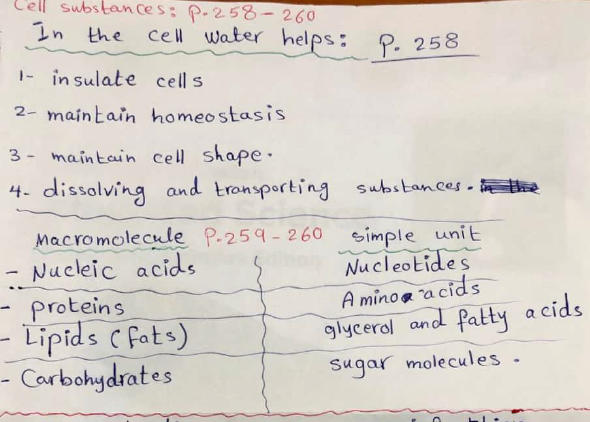 Cell substances: P.258-260
In the cell water helps: P. 258
1- insulate cells
2- maintain homeostasis
3- maintain cell shape.
4- dissolving and transporting substances.
Macromolecule P.259-260 simple unit
- Nucleic acids Nucleotides
- proteins Amino acids
- Lipids (fats) glycerol and fatty acids
- Carbohydrates sugar molecules.